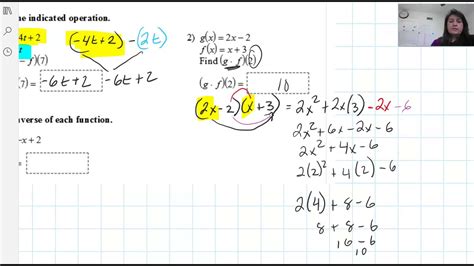 he indicated operation.
4t + 2
(-4t+2)-(2t)
- f)(7)
) = -6t+2 -6t+2
verse of each function.
-x + 2
2) g(x) = 2x - 2
f(x) = x + 3
Find (g · f)(2)
(g · f)(2) = 10
(2x-2)(x+3) = 2x² + 2x(3) -2x -6
2x² + 6x - 2x - 6
2x² + 4x - 6
2(2)² + 4(2) - 6
2(4) + 8 - 6
8 + 8 - 6
16 - 6
10